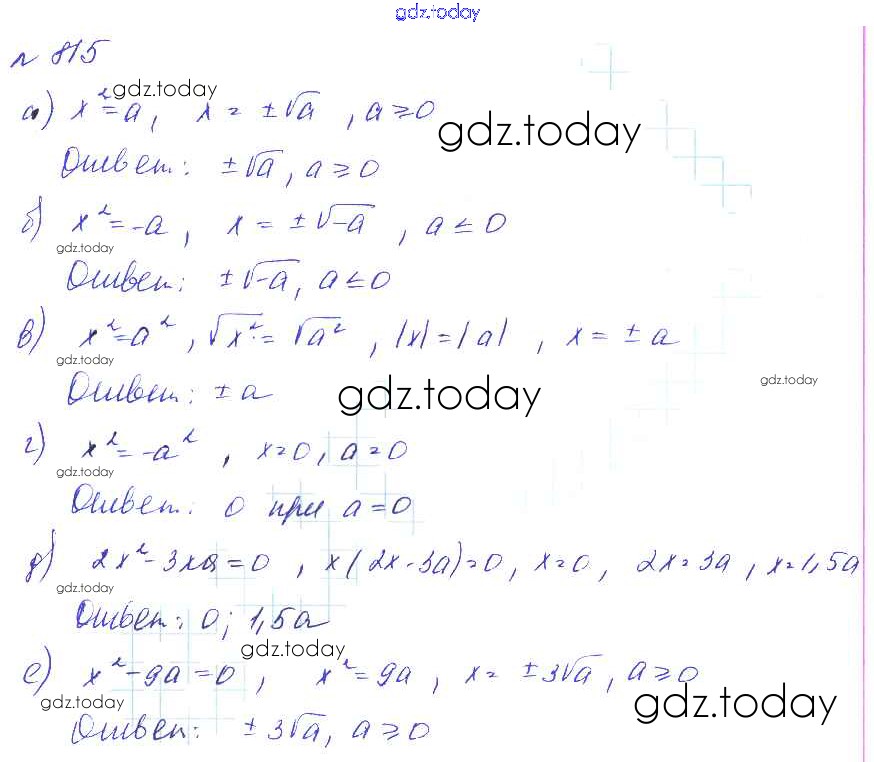 gdz.today
№ 815
gdz.today
а) x² = a, x = ±√a, a ≥ 0
gdz.today
Ответ: ±√a, a ≥ 0
б) x² = -a, x = ±√-a, a ≤ 0
gdz.today
Ответ: ±√-a, a ≤ 0
в) x² = a², √x² = √a², |x| = |a|, x = ±a
gdz.today
gdz.today
Ответ: ±a
gdz.today
г) x² = -a², x = 0, a = 0
gdz.today
Ответ: 0 при a = 0
д) 2x² - 3xa = 0, x(2x - 3a) = 0, x = 0, 2x = 3a, x = 1,5a
gdz.today
Ответ: 0; 1,5a
gdz.today
е) x² - 9a = 0, x² = 9a, x = ±3√a, a ≥ 0
gdz.today
gdz.today
Ответ: ±3√a, a ≥ 0